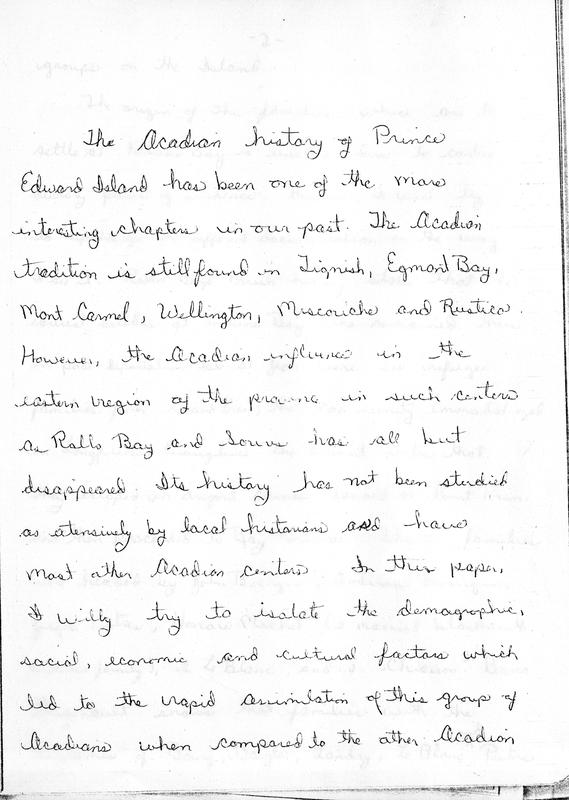 The Acadian history of Prince
Edward Island has been one of the more
interesting chapters in our past. The Acadian
tradition is still found in Tignish, Egmont Bay,
Mont Carmel, Wellington, Miscouche and Rustico.
However, the Acadian influence in the
eastern region of the province in such centers
as Rollo Bay and Souris has all but
disappeared. Its history has not been studied
as extensively by local historians as have
most other Acadian centers. In this paper,
I will try to isolate the demographic,
social, economic and cultural factors which
led to the rapid assimilation of this group of
Acadians when compared to the other Acadian